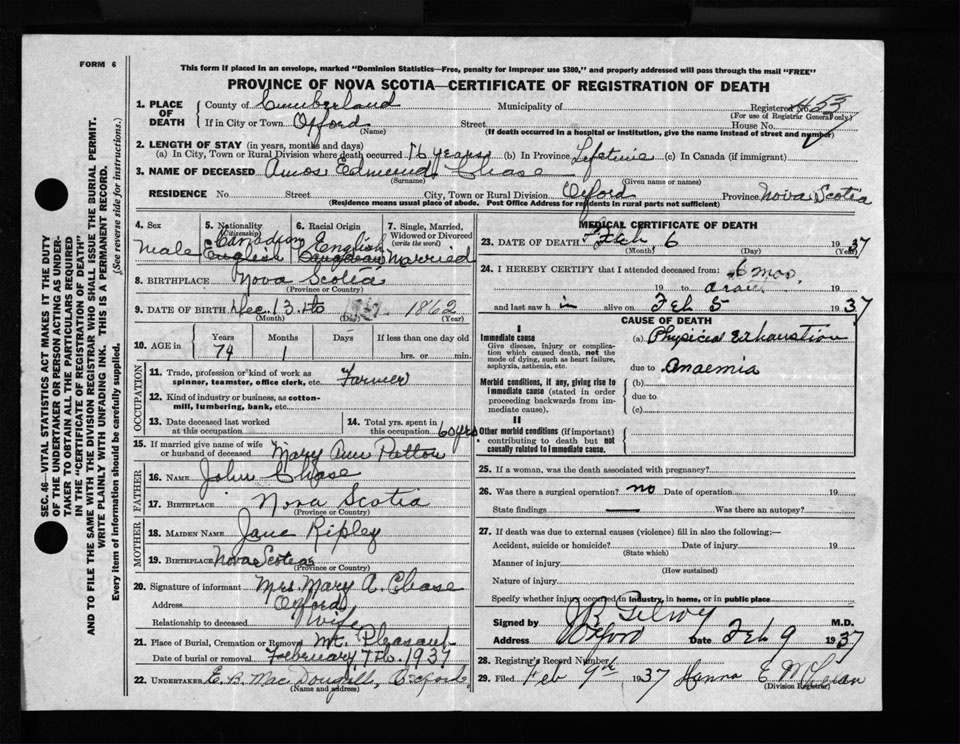 FORM 6
This form if placed in an envelope, marked "Dominion Statistics—Free, penalty for improper use $300," and properly addressed will pass through the mail "FREE"
PROVINCE OF NOVA SCOTIA—CERTIFICATE OF REGISTRATION OF DEATH
SEC. 46—VITAL STATISTICS ACT MAKES IT THE DUTY
OF THE UNDERTAKER OR PERSON ACTING AS UNDER-
TAKER TO OBTAIN ALL THE PARTICULARS REQUIRED
IN THE "CERTIFICATE OF REGISTRATION OF DEATH"
AND TO FILE THE SAME WITH THE DIVISION REGISTRAR WHO SHALL ISSUE THE BURIAL PERMIT.
WRITE PLAINLY WITH UNFADING INK. THIS IS A PERMANENT RECORD.
Every item of information should be carefully supplied. (See reverse side for instructions.)
1. PLACE OF DEATH
County of Cumberland Municipality of Registered No. 453
(For use of Registrar General only)
If in City or Town Oxford Street House No.
(Name) (If death occurred in a hospital or institution, give the name instead of street and number)
2. LENGTH OF STAY (in years, months and days)
(a) In City, Town or Rural Division where death occurred 16 years (b) In Province Lifetime (c) In Canada (if immigrant)
3. NAME OF DECEASED Amos Edmund Chase
(Surname) (Given name or names)
RESIDENCE No. Street City, Town or Rural Division Oxford Province Nova Scotia
(Residence means usual place of abode. Post Office Address for residents in rural parts not sufficient)
4. Sex
Male
5. Nationality
(Citizenship)
Canadian
English
6. Racial Origin
English
Canadian
7. Single, Married,
Widowed or Divorced
(write the word)
Married
8. BIRTHPLACE Nova Scotia
(Province or Country)
9. DATE OF BIRTH Dec. 13th 1862
(Month) (Day) (Year)
10. AGE in
Years Months Days If less than one day old
74 1 hrs. or min.
OCCUPATION
11. Trade, profession or kind of work as
spinner, teamster, office clerk, etc. Farmer
12. Kind of industry or business, as cotton-
mill, lumbering, bank, etc.
13. Date deceased last worked
at this occupation
14. Total yrs. spent in
this occupation 60 yrs
15. If married give name of wife
or husband of deceased Mary Ann Patton
FATHER
16. NAME John Chase
17. BIRTHPLACE Nova Scotia
(Province or Country)
MOTHER
18. MAIDEN NAME Jane Ripley
19. BIRTHPLACE Nova Scotia
(Province or Country)
20. Signature of informant Mrs. Mary A. Chase
Address Oxford
Relationship to deceased Wife
21. Place of Burial, Cremation or Removal Mt. Pleasant
Date of burial or removal February 7th. 1937
22. UNDERTAKER E. B. MacDougall, Oxford
(Name and address)
MEDICAL CERTIFICATE OF DEATH
23. DATE OF DEATH Feb 6 1937
(Month) (Day) (Year)
24. I HEREBY CERTIFY that I attended deceased from: 6 mos.
19 to 19
and last saw h im alive on Feb 5 1937
CAUSE OF DEATH
I
Immediate cause
Give disease, injury or complica-
tion which caused death, not the
mode of dying, such as heart failure,
asphyxia, asthenia, etc.
(a) Physical Exhaustion
due to Anaemia
Morbid conditions, if any, giving rise to
immediate cause (stated in order
proceeding backwards from im-
mediate cause).
(b)
due to
(c)
II
Other morbid conditions (if important)
contributing to death but not
causally related to immediate cause.
25. If a woman, was the death associated with pregnancy?
26. Was there a surgical operation? no Date of operation 19
State findings Was there an autopsy?
27. If death was due to external causes (violence) fill in also the following:—
Accident, suicide or homicide? Date of injury 19
(State which)
Manner of injury
(How sustained)
Nature of injury
Specify whether injury occurred in industry, in home, or in public place
Signed by J R Gilroy M.D.
Address Oxford Date Feb 9 1937
28. Registrar's Record Number
29. Filed Feb 9th 1937 Hanna E McLean
(Division Registrar)